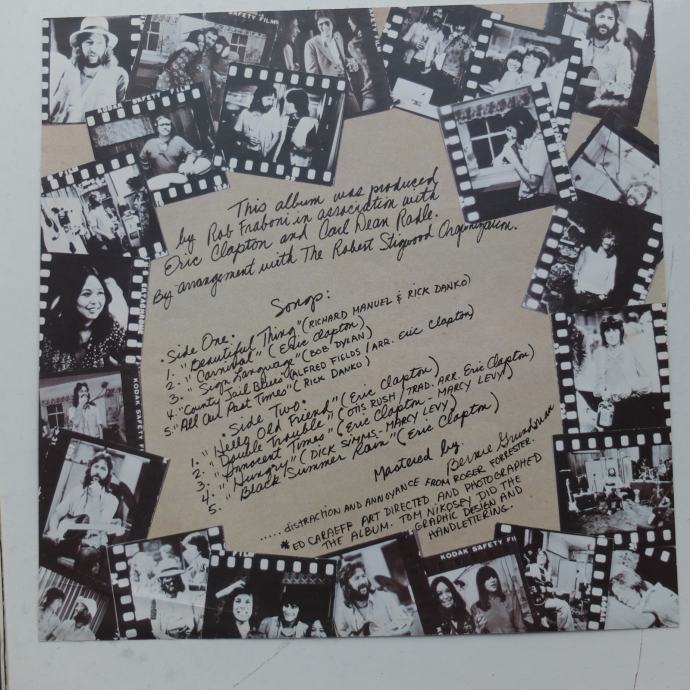 SAFETY FILM
KODAK SAFETY FILM
This album was produced
by Rob Fraboni in association with
Eric Clapton and Carl Dean Radle.
By arrangement with The Robert Stigwood Organization.
Songs:
• Side One •
1. "Beautiful Thing" (RICHARD MANUEL & RICK DANKO)
2. "Carnival" (Eric Clapton)
3. "Sign Language" (BOB DYLAN)
4. "County Jail Blues" (ALFRED FIELDS / ARR. Eric Clapton)
5. "All Our Past Times" (RICK DANKO)
• Side Two •
1. "Hello Old Friend" (Eric Clapton)
2. "Double Trouble" (OTIS RUSH / TRAD. ARR. Eric Clapton)
3. "Innocent Times" (Eric Clapton - MARCY LEVY)
4. "Hungry" (DICK SIMMS - MARCY LEVY)
5. "Black Summer Rain" (Eric Clapton)
Mastered by
Bernie Grundman
..... DISTRACTION AND ANNOYANCE FROM ROGER FORRESTER.
*ED CARAEFF ART DIRECTED AND PHOTOGRAPHED
THE ALBUM. TOM NIKOSEY DID THE
GRAPHIC DESIGN AND
HANDLETTERING.
KODAK SAFETY
KODAK SAFETY FI